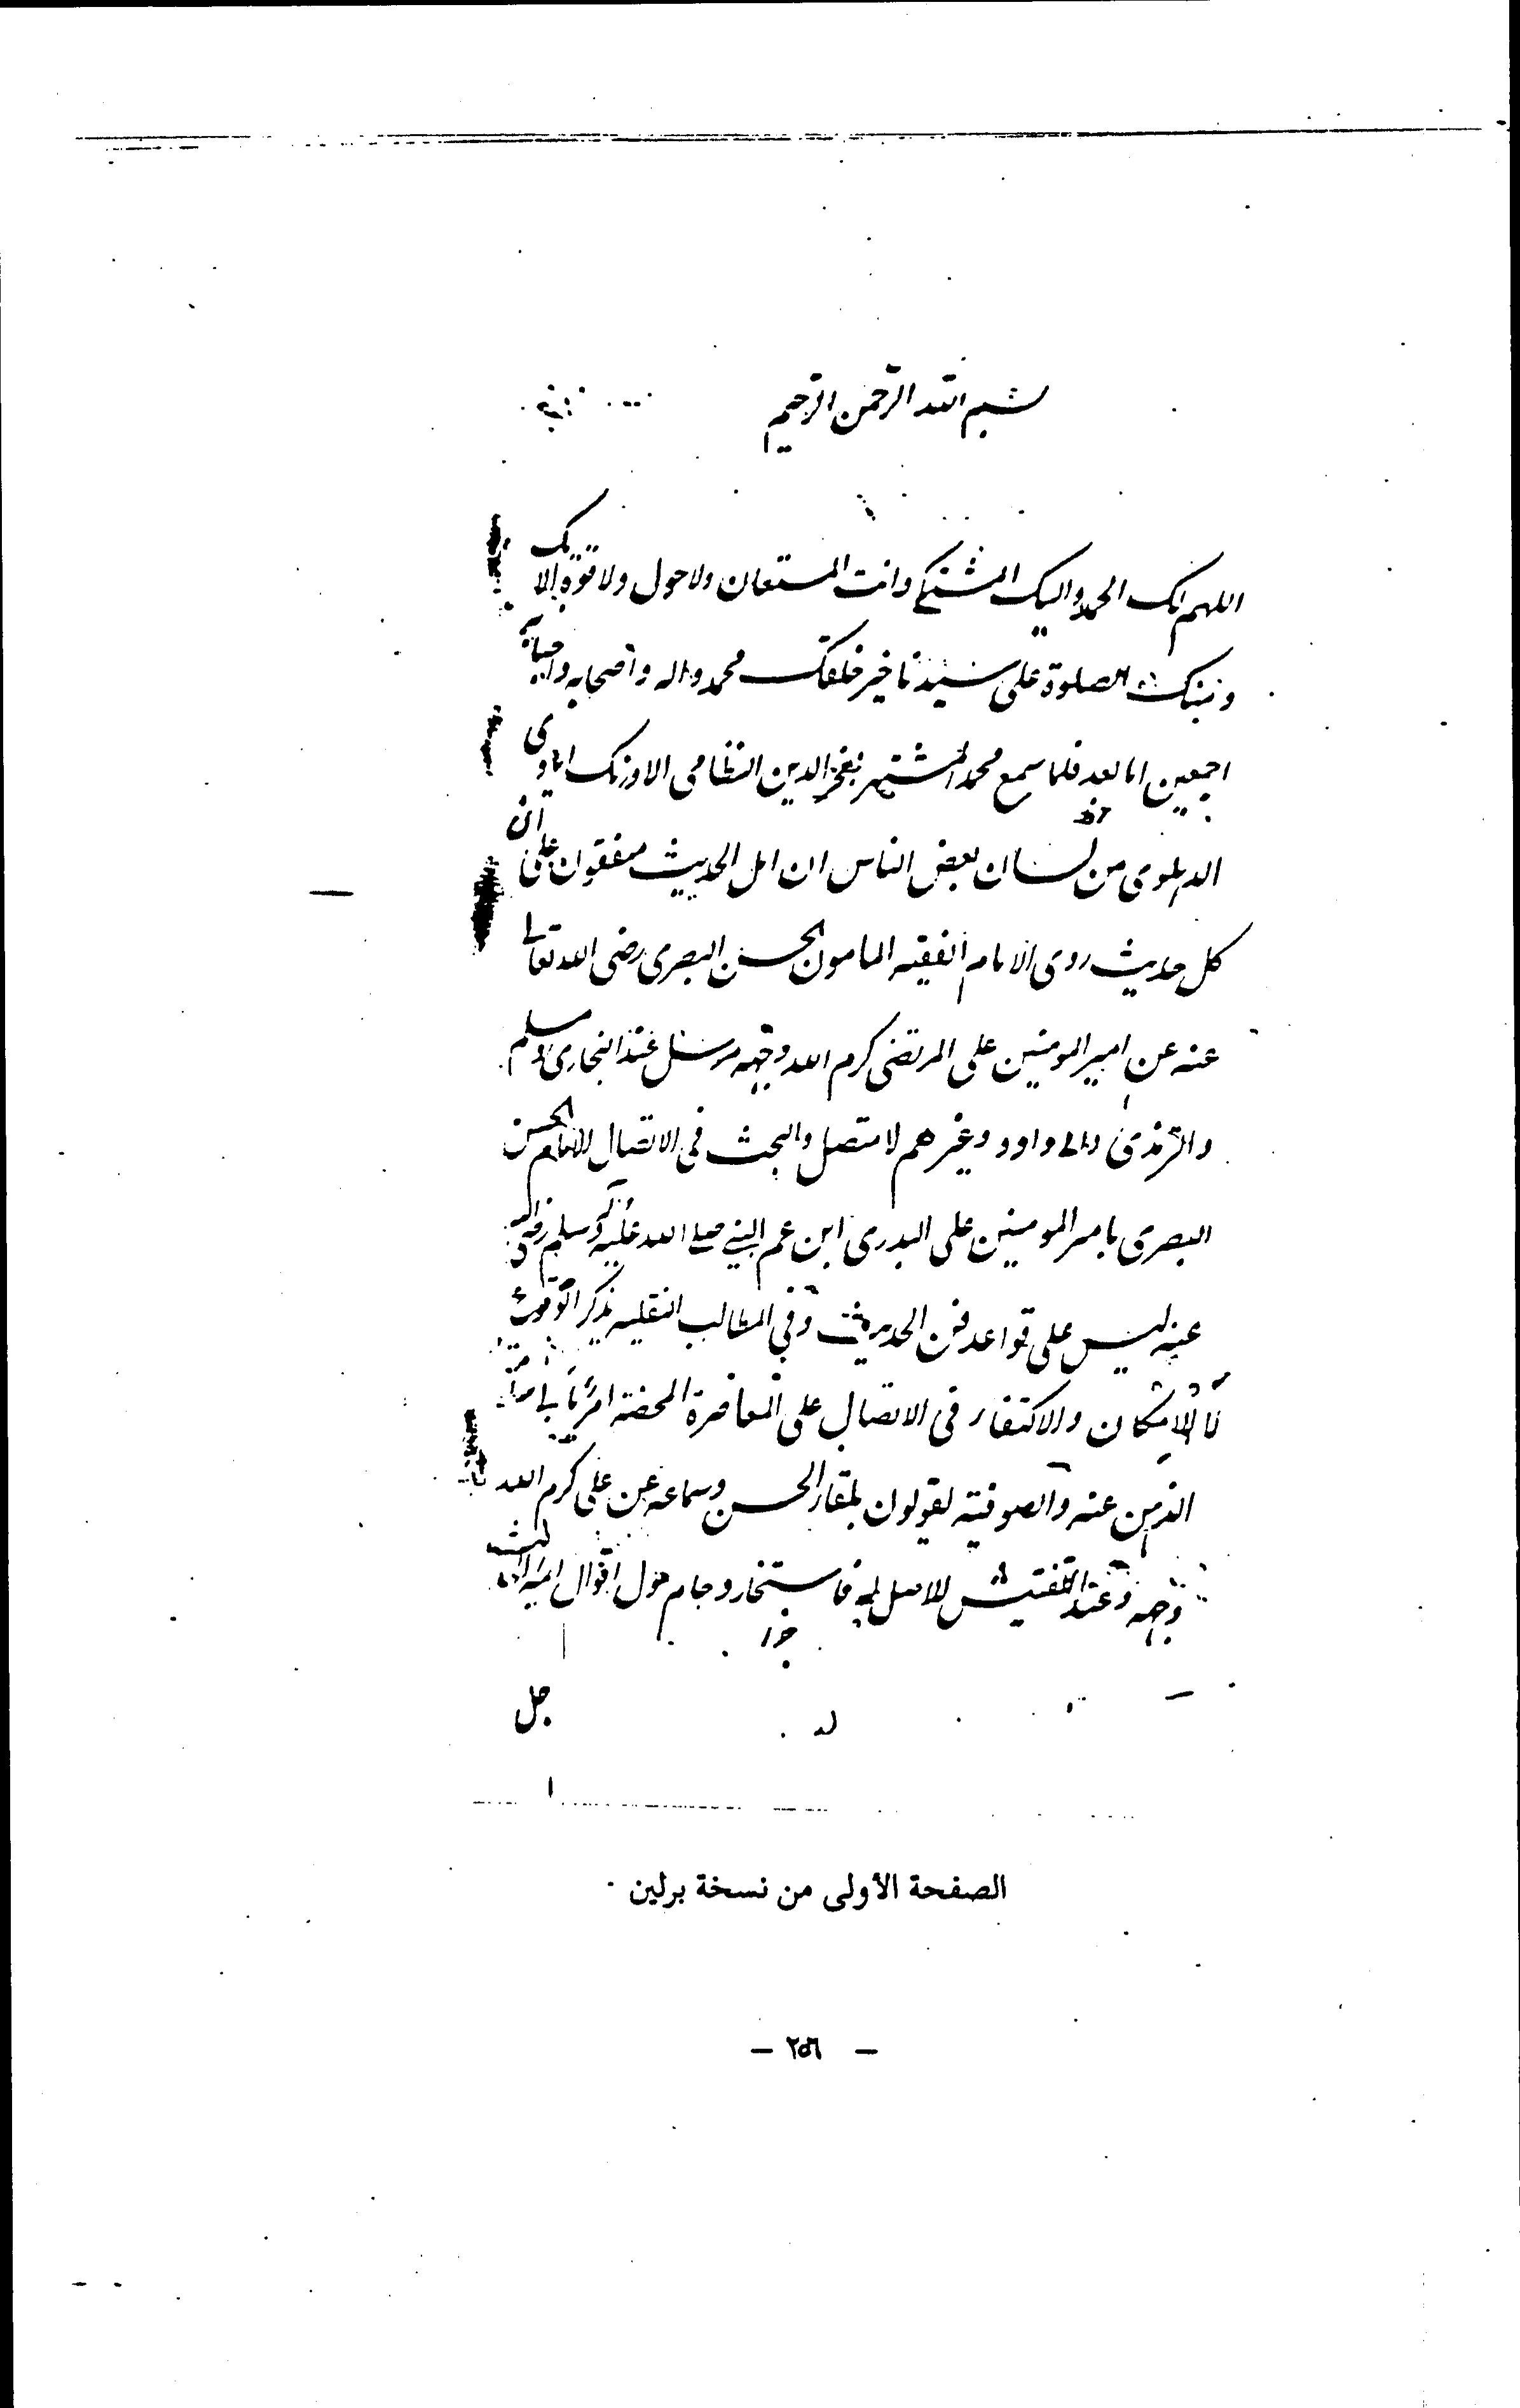 بسم الله الرحمن الرحيم
اللهم لك الحمد واليك المشتكى وانت المستعان ولا حول ولا قوة الا بك
ومنك الصلوة على سيدنا خير خلقك محمد واله واصحابه واحبابه
اجمعين اما بعد فلما سمع محمد المشتهر بفخر الدين النظامى الاورنك ابادى
الدهلوى من لسان بعض الناس ان اهل الحديث متفقون على ان
كل حديث روى الامام الفقيه المامون الحسن البصرى رضى الله تعالى
عنه عن امير المومنين على المرتضى كرم الله وجهه مرسل عند البخارى و مسلم
والترمذى وابى داود وغيرهم لا متصل والبحث فى الاتصال للامام الحسن
البصرى بامير المومنين على البدرى ابن عم النبى صلى الله عليه وسلم رضى الله
عنه ليس على قواعد فن الحديث وفى المطالب النقلية يذكر الوقوع
لا الامكان والاكتفاء فى الاتصال على المعاصرة المحضة امر
عنه والصوفية يقولون بلقاء الحسن وسماعه عن على كرم الله
وجهه وعند التفتيش لا اصل له فاستخار وحام حول اقوال ائمة
الصفحة الأولى من نسخة برلين
– ٢٥٦ –